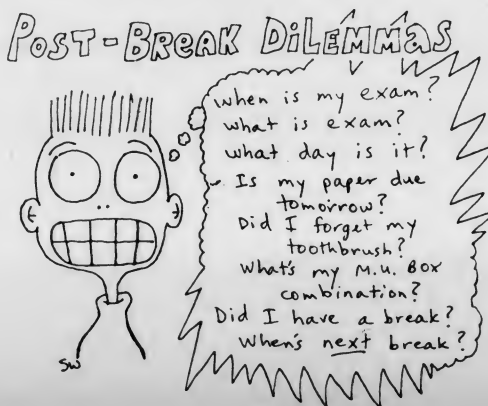 POST-BREAK DILEMMAS
when is my exam?
what is exam?
what day is it?
Is my paper due
tomorrow?
Did I forget my
toothbrush?
What's my M.U. Box
combination?
Did I have a break?
When's next break?
SW